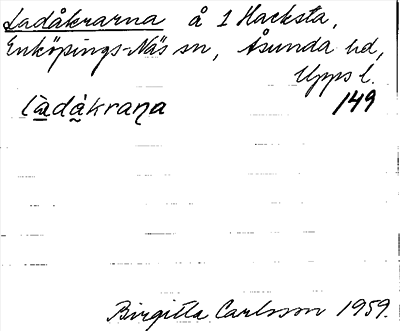 Ladåkrarna å 1 Hacksta,
Enköpings-Näs sn, Åsunda hd,
Upps l.
làdåkraṇa 149
Birgitta Carlsson 1959.